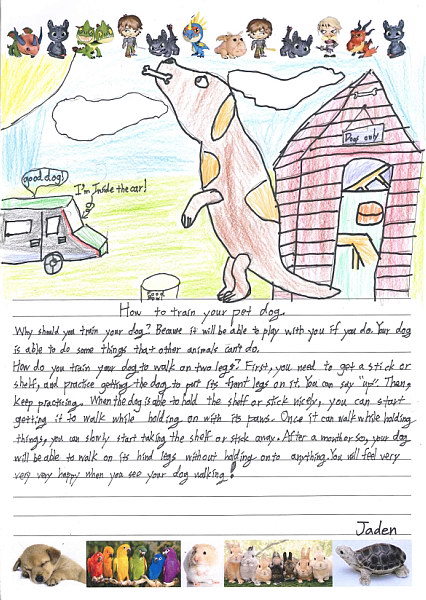 Dogs only
good dog!
I'm Inside the car!
Food
Bowl
How to train your pet dog.
Why should you train your dog? Because it will be able to play with you if you do. Your dog
is able to do some things that other animals can't do.
How do you train your dog to walk on two legs? First, you need to get a stick or
shelf, and practice getting the dog to put its front legs on it. You can say "up". Then,
keep practising. When the dog is able to hold the shelf or stick nicely, you can start
getting it to walk while holding on with its paws. Once it can walk while holding
things, you can slowly start taking the shelf or stick away. After a month or so, your dog
will be able to walk on its hind legs without holding onto anything. You will feel very
very very happy when you see your dog walking!
Jaden